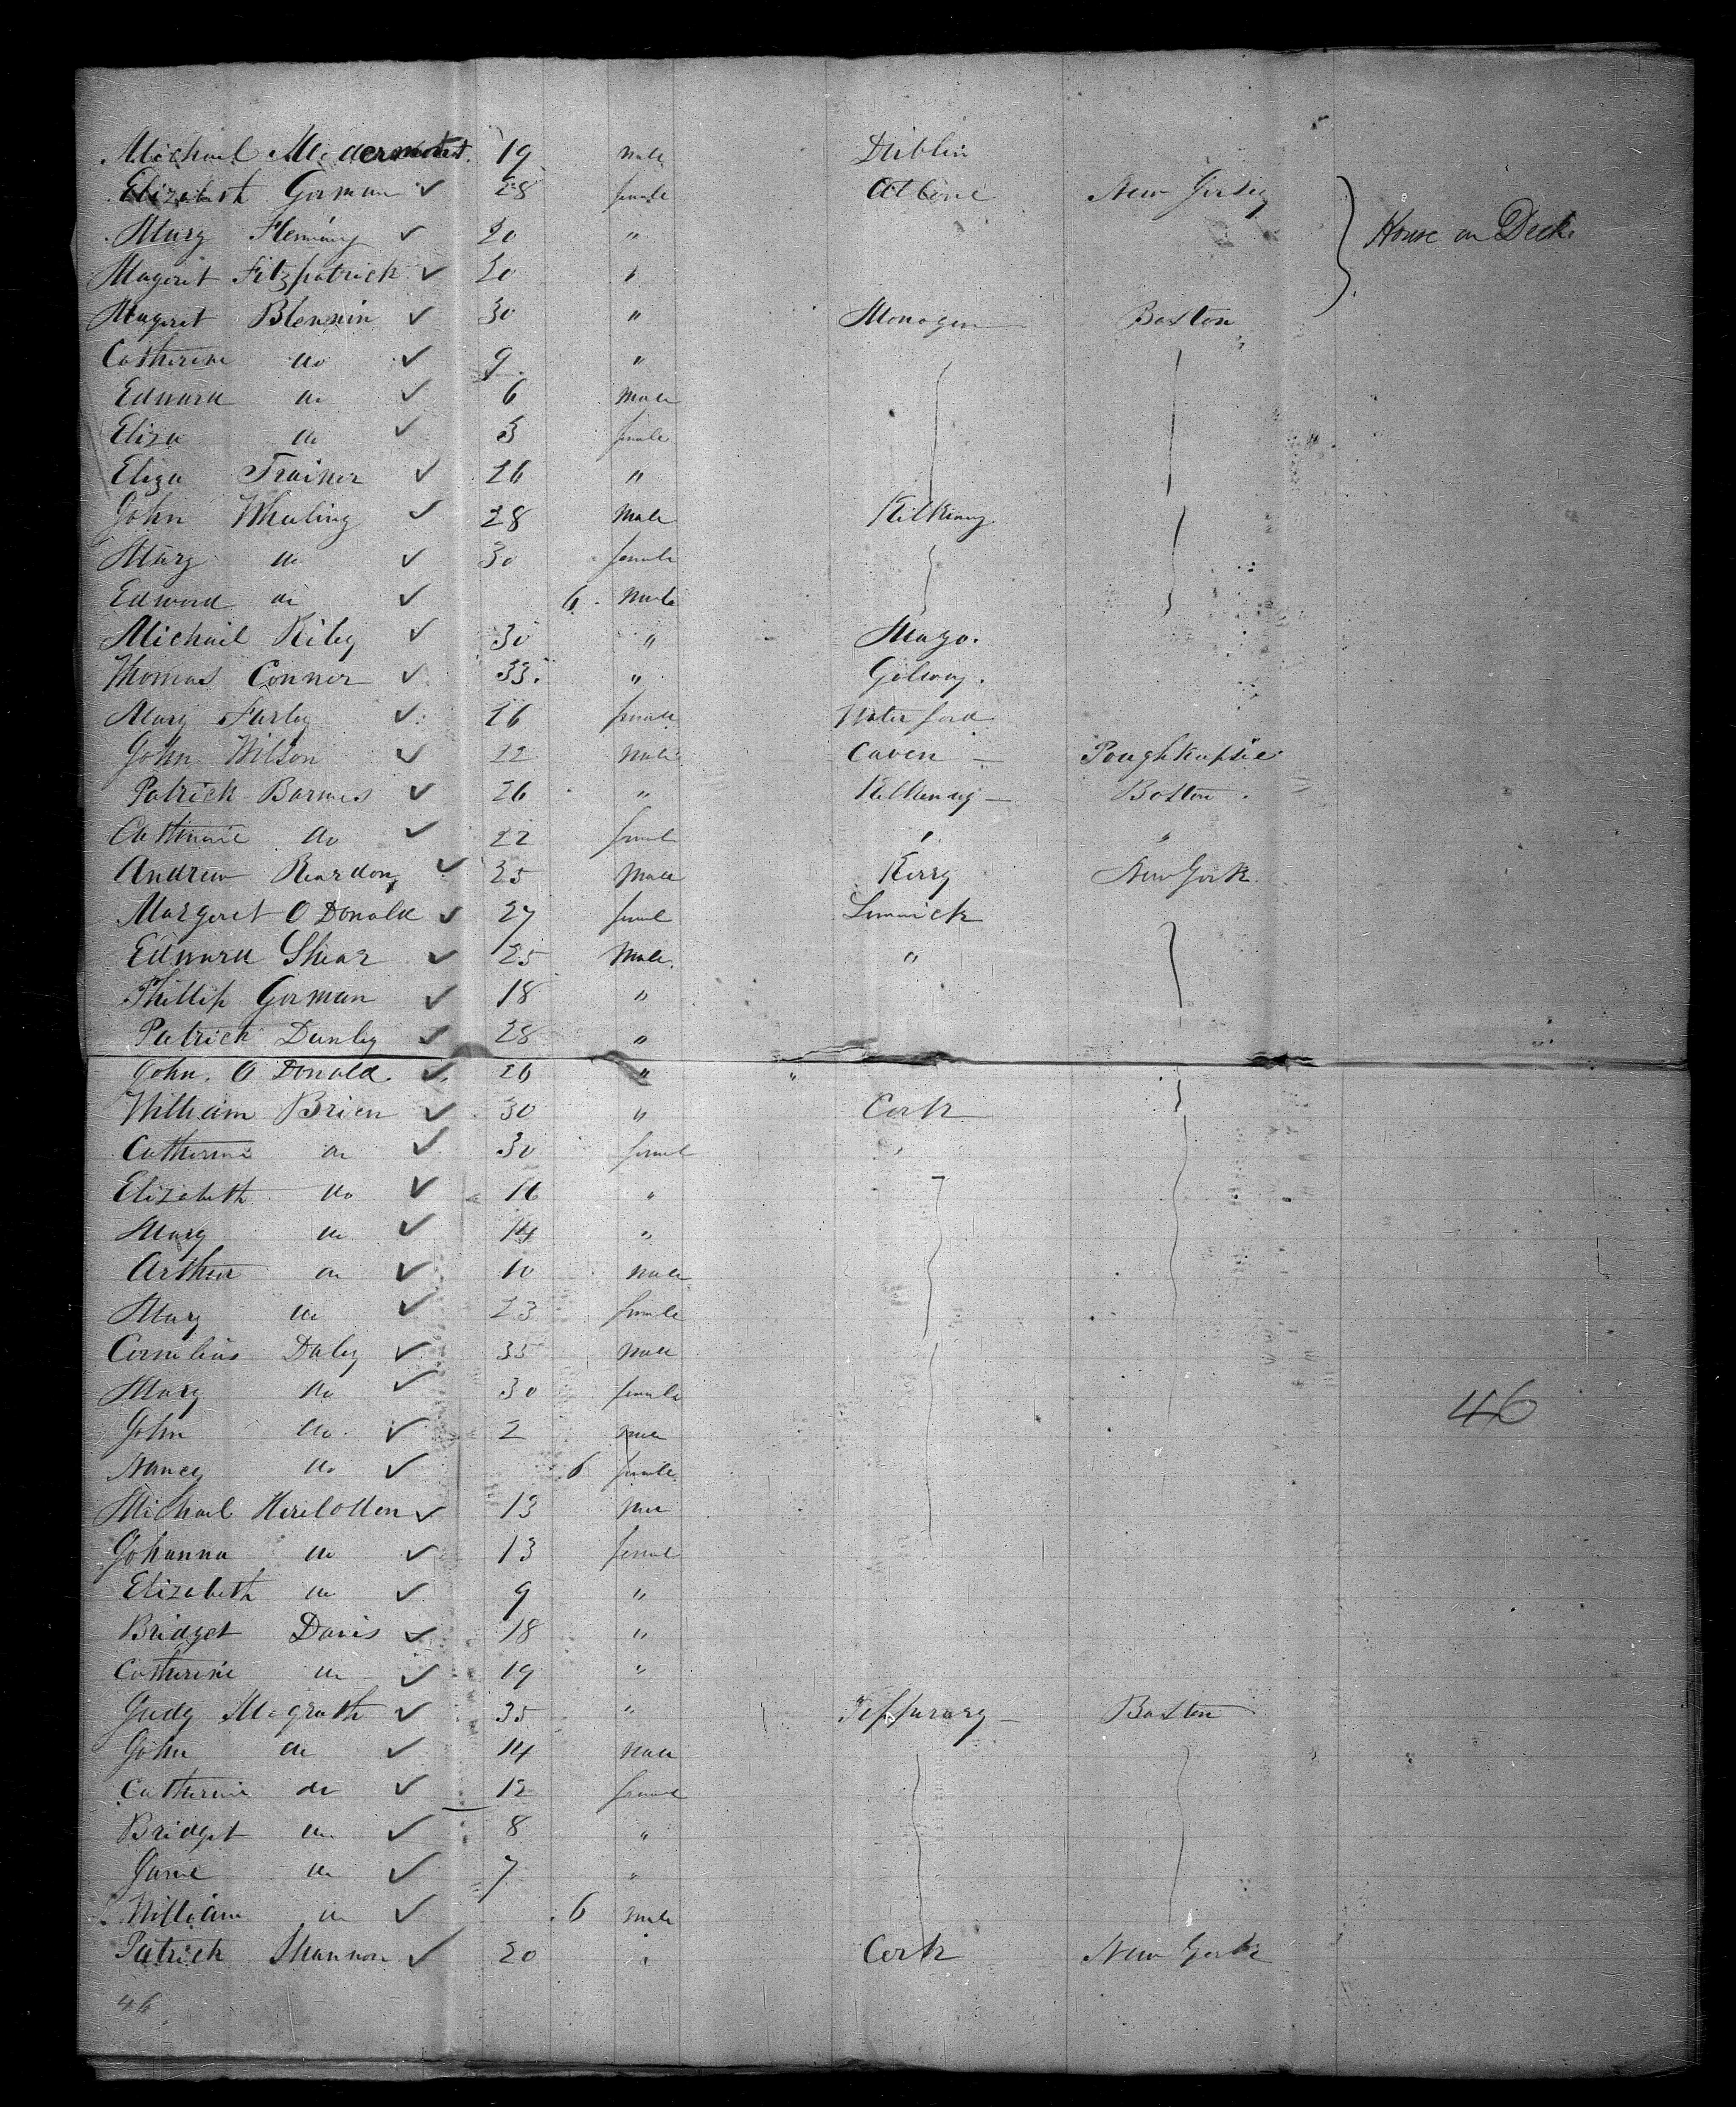 Michael Mc dermotet. 19 Male Dublin
Elizabeth Gorman ✓ 28 female Atlone New Jersey
Mary Fleming ✓ 20 "
Mageret Fitzpatrick ✓ 20 " House on Deck
Mageret Blennin ✓ 30 " Monogen Boston
Catherine do ✓ 9 "
Edward do ✓ 6 Male
Eliza do ✓ 3 female
Eliza Trainer ✓ 26 "
John Wheeling ✓ 28 Male Kilkenny
Mary do ✓ 30 female
Edward do ✓ 6 Male
Michail Riley ✓ 30 " Mayo.
Thomas Conner ✓ 33. " Galway.
Mary Farley ✓ 26 female Waterford
John Wilson ✓ 22 Male Caven — Poughkepsie
Patrick Barnes ✓ 26 " Kilkenny — Boston.
Catherine do ✓ 22 femal " "
Andrew Reardon ✓ 25 Male Kerry New York
Margeret O Donald ✓ 27 femal Limrick
Edward Shear ✓ 25 Male. "
Phillip Gorman ✓ 18 "
Patrick Dunley ✓ 28 "
John. O Donald. ✓ 26 " "
William Brien ✓ 30 " Cork
Catherine do ✓ 30 femal "
Elizabeth do ✓ 16 "
Mary do ✓ 14 "
Arthur do ✓ 10 Male
Mary do ✓ 23 female
Cornelius Daley ✓ 35 Male
Mary do ✓ 30 female
John do. ✓ 2 Male 46
Nancy do ✓ 6 female
Michael ✓ 13 Male
Johanna do ✓ 13 femal
Elizabeth do ✓ 9 "
Bridget Davis ✓ 18 "
Catherine do ✓ 19 "
Judy Mcgrath ✓ 35 " Tipperary — Boston
John do ✓ 14 Male
Catherine do ✓ 12 femal
Bridget do ✓ 8 "
Jane do ✓ 7 "
William do ✓ 6 Male
Patrick Shannon ✓ 20 " Cork New York
46